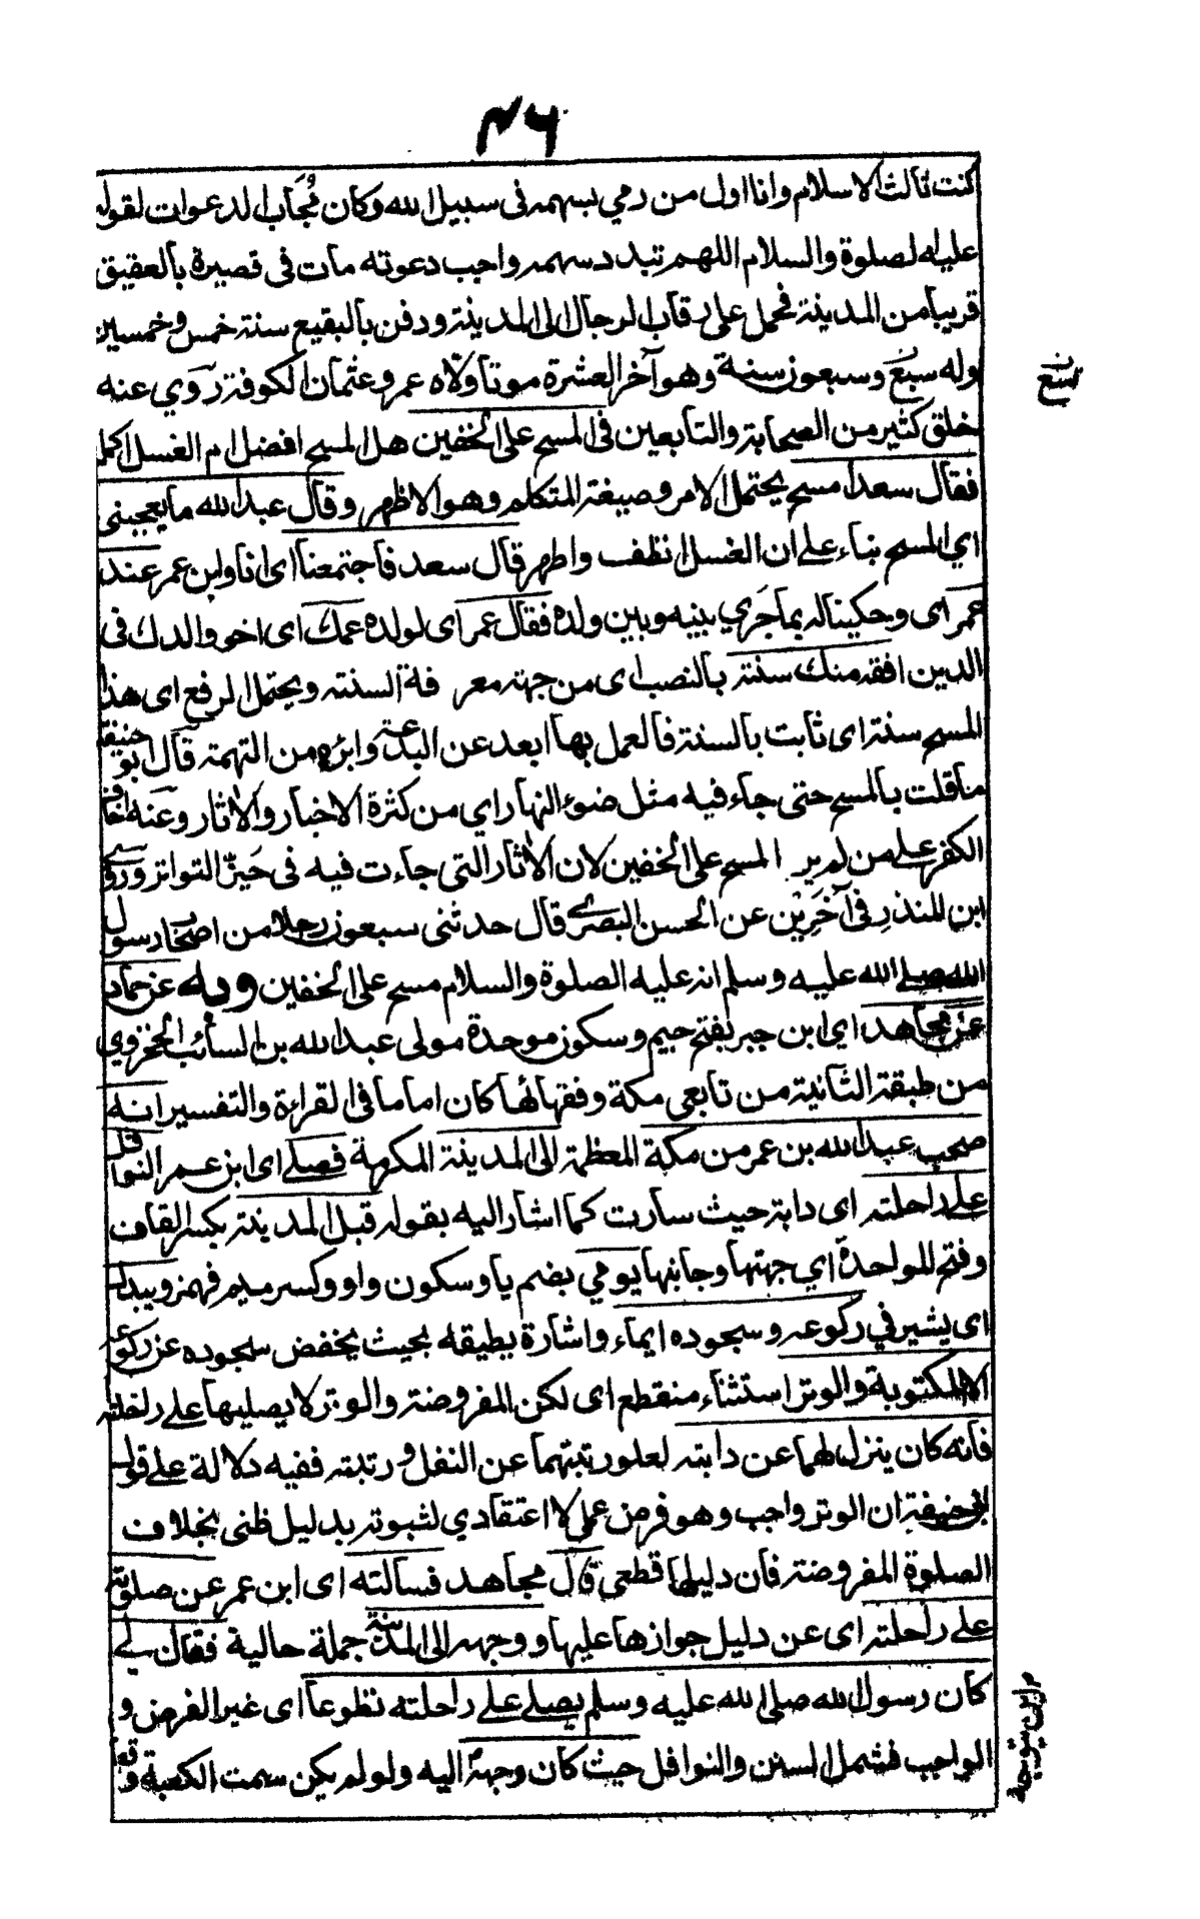 ٤٦
كنت ثالث الاسلام وانا اول من رمي بسهم في سبيل الله وكان مُجَاب الدعوات لقوله
عليه الصلوة والسلام اللهم سدد سهمه واجب دعوته مات في قصره بالعقيق
قريبا من المدينة فحمل على رقاب الرجال الى المدينة ودفن بالبقيع سنة خمس وخمسين
وله سبع وسبعون سنة وهو آخر العشرة موتا ولّاه عمر وعثمان الكوفة روي عنه
خلق كثير من الصحابة والتابعين في المسح على الخفين هل المسح افضل ام الغسل اكمل
فقال سعد امسح يحتمل الامر وصيغة المتكلم وهو الاظهر وقال عبد الله ما يعجبني
اي المسح بناء على ان الغسل انظف واطهر قال سعد فاجتمعنا اى انا وابن عمر عند
عمر اى وحكينا له بما جَرَي بينه وبين ولده فقال عمر اى لولده عمك اى اخو والدك فى
الدين افقه منك سنة بالنصب اى من جهة معر فة السنة ويحتمل الرفع اى هذا
المسح سنة اى ثابت بالسنة فالعمل بها ابعد عن البدعة وابرء من التهمة قال ابو حنيفة
ما قلت بالمسح حتى جاء فيه مثل ضوء النهار اي من كثرة الاخبار والآثار وعنه اخاف
الكفر على من لم ير المسح على الخفين لان الآثار التي جاءت فيه فى حَيّز التواتر وروى
ابن المنذر فى آخَرِين عن الحسن البصرى قال حدثنى سبعون رجلا من اصحاب رسول
الله صلى الله عليه وسلم انه عليه الصلوة والسلام مسح على الخفين وبه عن حماد
عن مجاهد اي ابن جبر بفتح جيم وسكون موحدة مولى عبد الله بن السائب المخزومي
من طبقة الثانية من تابعى مكة وفقهائها كان اماما في القراءة والتفسير انه
صحب عبد الله بن عمر من مكة المعظمة الى المدينة المكرمة فصلى اى ابن عمر النوافل
على راحلته اى دابته حيث سارت كما اشار اليه بقوله قبل المدينة بكسر القاف
وفتح الموحدة اي جهتها وجانبها يومي بضم يا وسكون واو وكسر ميم فهمز ويبدل
اى يشير في ركوعه وسجوده ايماء واشارة بطيقه بحيث يخفض سجوده عن ركوعه
الا المكتوبة والوتر استثناء منقطع اى لكن المفروضة والوتر لا يصليها على راحلته
فانه كان ينزل لهما عن دابته لعلو رتبتهما عن النفل ورتبته ففيه دلالة على قول
ابى حنيفة ان الوتر واجب وهو فرض عملى لا اعتقادي لثبوته بدليل ظنى بخلاف
الصلوة المفروضة فان دليلها قطعى قال مجاهد فسالته اى ابن عمر عن صلوته
على راحلته اى عن دليل جوازها عليها ووجهه الى المدينة جملة حالية فقال لى
كان رسول الله صلى الله عليه وسلم يصلى على راحلته تطوعا اى غير الفرض و
الواجب فشمل السنن والنوافل حيث كان وجهه اليه ولو لم يكن سمت الكعبة وقع